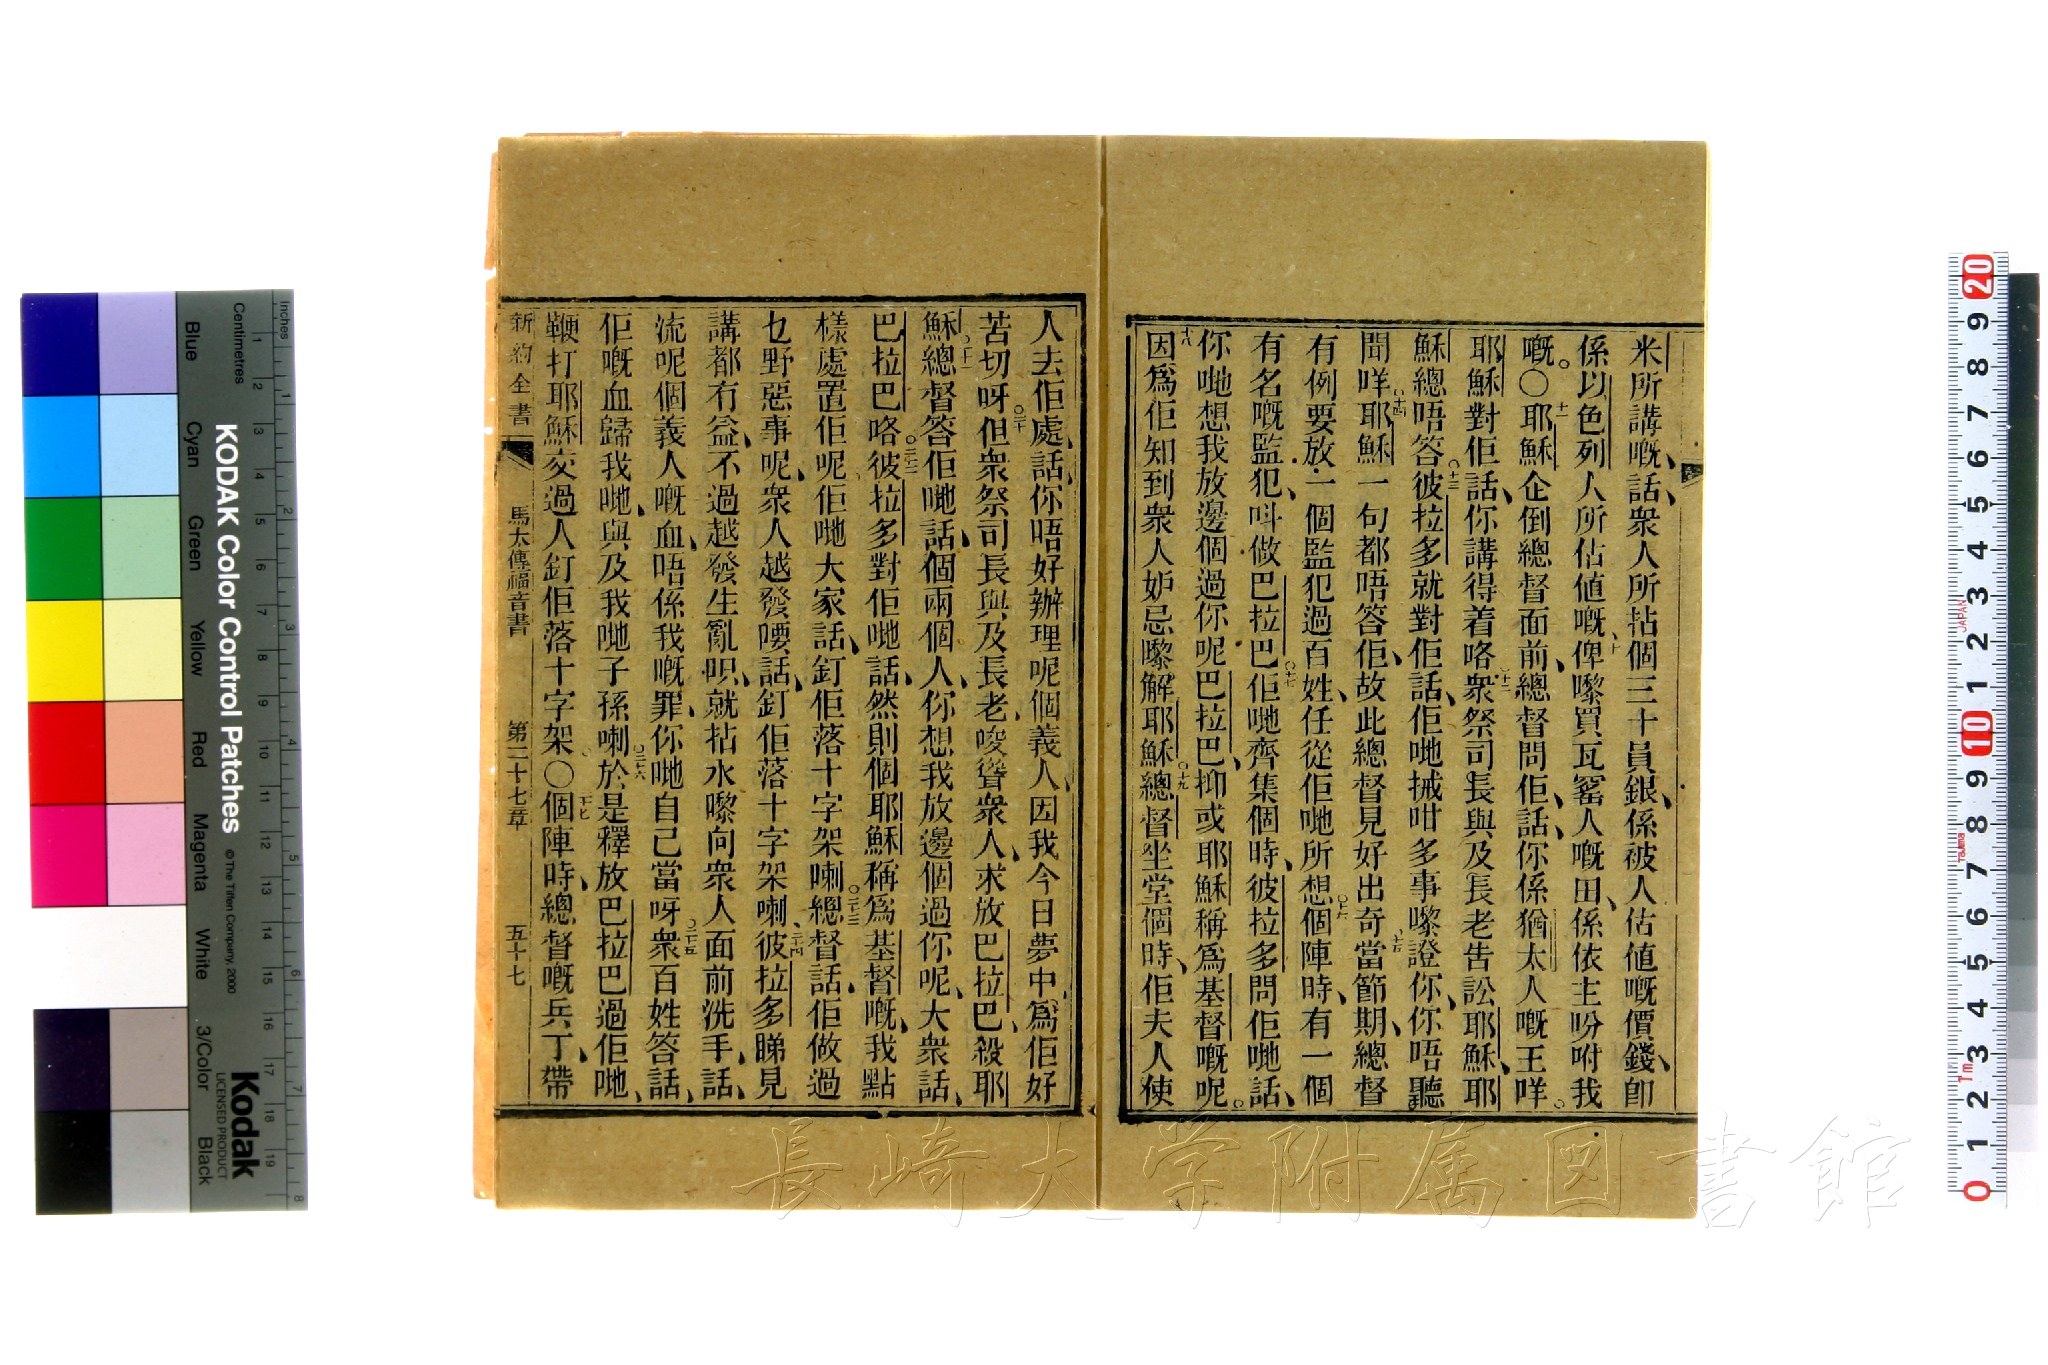 米所講嘅、話、衆人所拈個三十員銀、係被人估値嘅價錢、卽
係以色列人所估値嘅、十俾嚟買瓦窰人嘅田、係依主吩咐我
嘅。〇十一耶穌企倒總督面前、總督問佢、話、你係猶太人嘅王咩。
耶穌對佢話、你講得着咯。十二衆祭司長與及長老吿訟耶穌、耶
穌總唔答。十三彼拉多就對佢話、佢哋搣咁多事嚟證你、你唔聽
聞咩。十四耶穌一句都唔答佢、故此總督見好出奇。十五當節期、總督
有例要放一個監犯過百姓、任從佢哋所想。十六個陣時、有一個
有名嘅監犯、呌做巴拉巴。十七佢哋齊集個時、彼拉多問佢哋話、
你哋想我放邊個過你呢、巴拉巴、抑或耶穌稱爲基督嘅呢。
十八因爲佢知到衆人妒忌嚟解耶穌。十九總督坐堂個時、佢夫人使
人去佢處、話、你唔好辦理呢個義人、因我今日夢中、爲佢好
苦切呀。二十但衆祭司長與及長老、唆聳衆人、求放巴拉巴、殺耶
穌。二十一總督答佢哋、話、個兩個人、你想我放邊個過你呢、大衆話、
巴拉巴咯。二十二彼拉多對佢哋話、然則個耶穌稱爲基督嘅、我點
樣處置佢呢、佢哋大家話、釘佢落十字架喇。二十三總督話、佢做過
乜野惡事呢、衆人越發嗌、話、釘佢落十字架喇。二十四彼拉多睇見
講都冇益、不過越發生亂呮、就拈水嚟向衆人面前洗手、話、
流呢個義人嘅血、唔係我嘅罪、你哋自己當呀。二十五衆百姓答話、
佢嘅血歸我哋、與及我哋子孫喇。二十六於是釋放巴拉巴過佢哋、
鞭打耶穌交過人釘佢落十字架。〇二十七個陣時、總督嘅兵丁、帶
新約全書 馬太傳福音書 第二十七章 五十七
長崎大学附属図書館
KODAK Color Control Patches
© The Tiffen Company, 2000
Kodak
LICENSED PRODUCT
Inches
Centimetres
Blue Cyan Green Yellow Red Magenta White 3/Color Black
JAPAN
Tajima